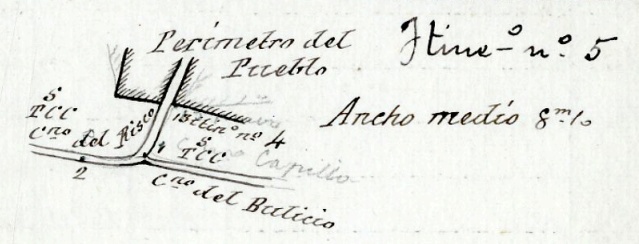 Perímetro del
Pueblo
Itine-º nº 5
Ancho medio 8m
S
TCC
Cno del Risco
13
Itinº nº 4
S
TCC
Capilla
1
2
Cno del Bulicio